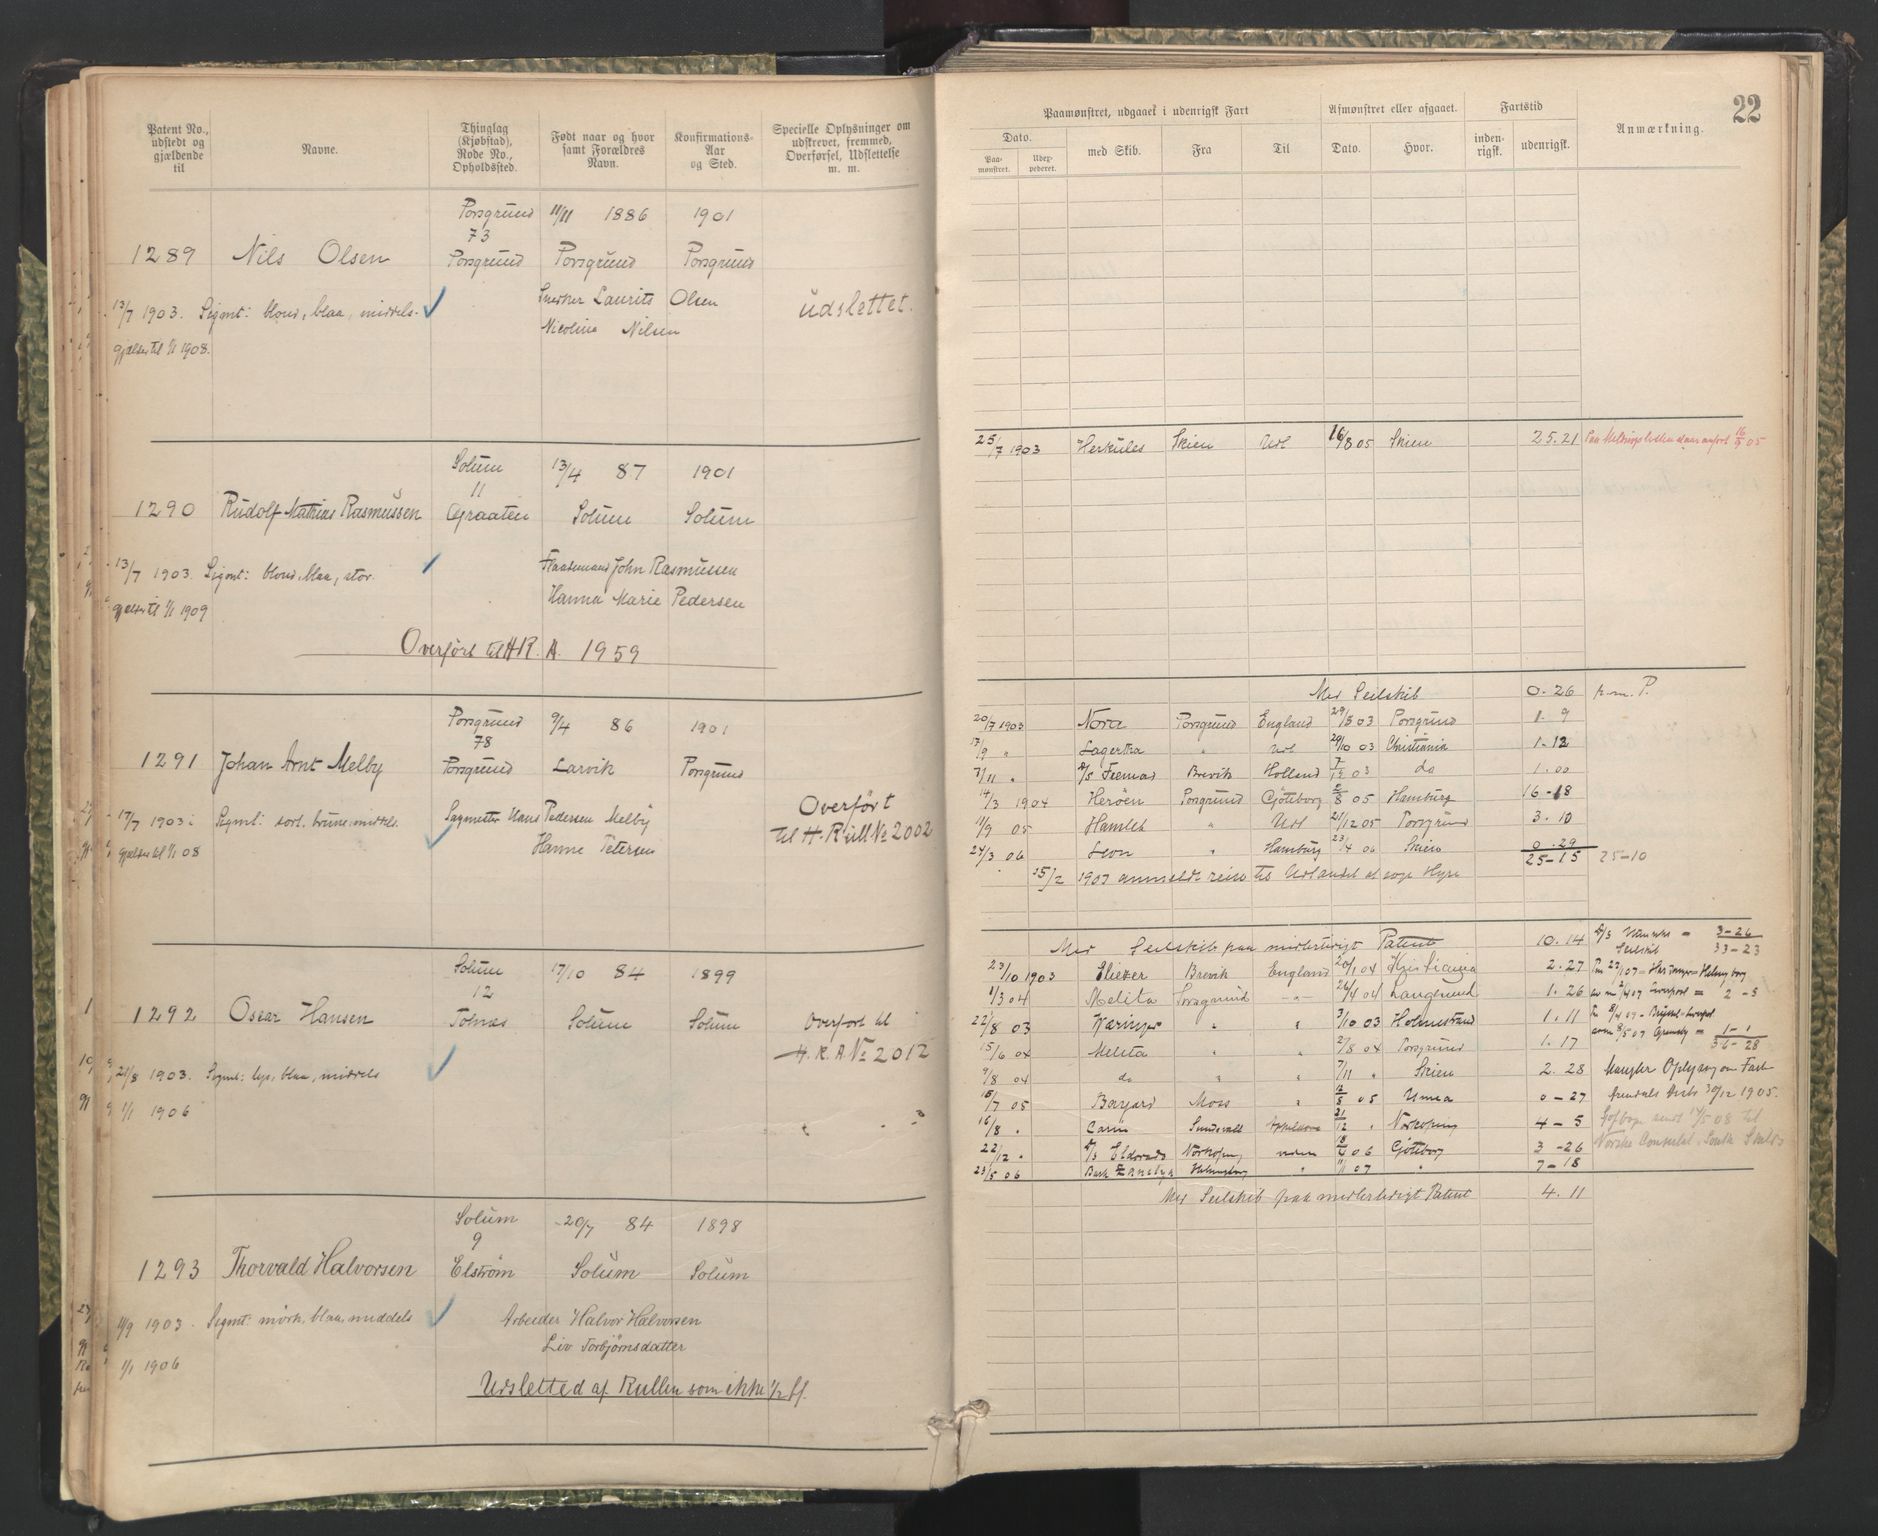 Patent No., udstedt og gjældende til
Navne.
Thinglag (Kjøbstad), Rode No., Opholdssted.
Født naar og hvor samt Forældres Navn.
Konfirmations-Aar og Sted.
Specielle Oplysninger om udstrevet, fremmed, Overførsel, Udslettelse m. m.
Porsgrund 11/11 1886 1901
73
1289 Nils Olsen Porsgrund Porsgrund Porsgrund
13/7 1903. Sigmt: blond, blaa, middels- Snedker Laurits Olsen udslettet.
Nicolina Nilsen
gjælder til 1/1 1908.
Solum 13/4 87 1901
11
1290 Rudolf Mathias Rasmussen Graaten Solum Solum
13/7 1903. Sigmt: blond, blaa, stor. John Rasmussen
gjælder til 1/1 1909 Hanna Marie Pedersen
Overført til H.R. A. 1959
Porsgrund 9/4 86 1901
78
1291 Johan Arnt Melby Porsgrund Larvik Porsgrund
Overført
17/7 1903 Sigmt: sort, brune, middels. Sagmester Hans Pedersen Melby til H. Rull No 2002
gjælder til 1/1 08 Hanne Petersen
Solum 17/10 84 1899
12
1292 Oscar Hansen Tolnæs Solum Solum Overført til
H. R. A No 2012
21/8 1903. Sigmt: lys, blaa, middels
1/1 1906
Solum 20/7 84 1898
9
1293 Thorvald Halvorsen Elstrøm Solum Solum
11/9 1903. Sigmt: mørk, blaa, middels Arbeider Halvor Halvorsen
Liv Torbjørnsdatter
1/1 1906
Udsletted af Rullen som ikke 1/2 bf.
22
Paamønstret, udgaaet i udenrigsk Fart
Afmønstret eller afgaaet.
Fartstid
Anmærkning.
Dato.
Paa-mønstret.
med Skib.
Fra
Til
Dato.
Hvor.
inden-rigsk.
udenrigsk.
25/7 1903 Herkules Skien Udl 16/8 05 Skien 25.21 16/8 05
Med Seilskib 0.26 p.m. P.
20/7 1903 Nora Porsgrund England 29/8 03 Porsgrund 1.9
17/9 " Lagertha " Udl 29/10 03 Christiania 1-12
7/11 " Brevik Holland 7/12 03 do 1.00
14/3 1904 Herøen Porsgrund Gøteborg 2/8 05 Hamburg 16-18
11/9 05 Hamlet " Udl 21/12 05 Porsgrund 3.10
24/3 06 Leon " Hamburg 23/4 06 Skien 0.29
25-15 25-10
15/2 1907 anmeldt reise til Udlandet at søge Hyre
Med Seilskib paa midlertidigt Patent 10.14 = 3-26
Seilskib 33-23
23/10 1903 Eliezer Brevik England 20/1 04 Kristiania 2.27
1/3 04 Melita Porsgrund -"- 26/4 04 Langesund 1.26 = 2-5
22/8 03 Væringer " " 3/10 03 Holmestrand 1.11
1-1
15/6 04 Melita " " 2/8 04 Porsgrund 1.17 36-28
9/8 04 do " " 7/11 " Skien 2.28 Mangler Oplysning om Fart
15/7 05 Bayard Moss " 05 Umea 0-27 Arendals Distr 30/12 1905.
16/8 " Carin Sundsvall 21/12 " Norkøping 4-5 Søfbog sendt 17/5 08 til
22/12 " Eldorado Norkøping 06 Gøteborg 3-26 Norske Consulat, South Shields
23/5 06 Bark " 11/1 07 " 7-18
Med Seilskib paa midlertidigt Patent 4.11